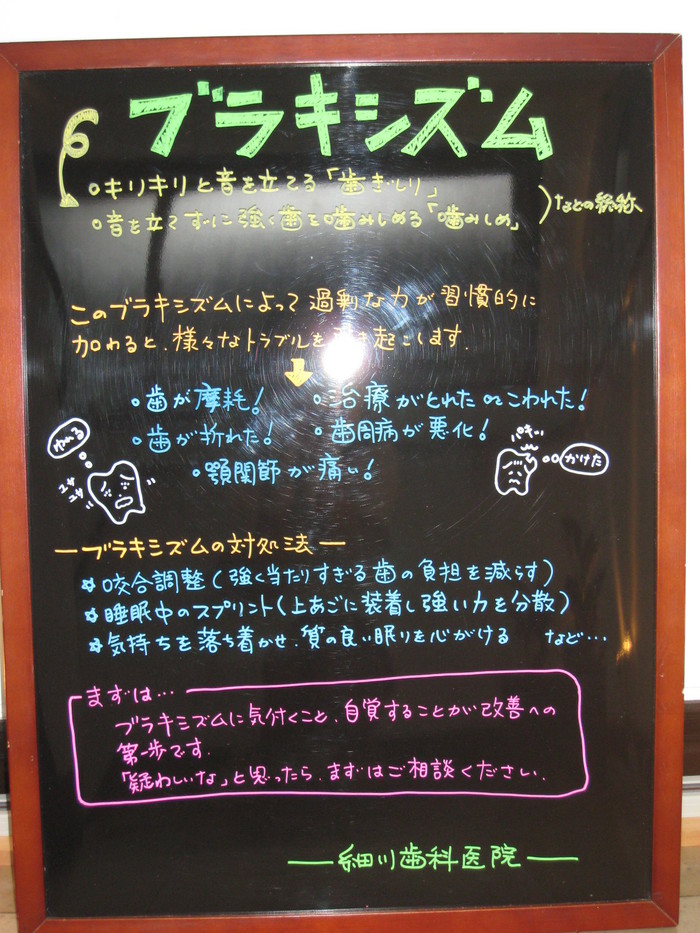 ブラキシズム
○キリキリと音を立てる「歯ぎしり」
○音を立てずに強く歯を噛みしめる「噛みしめ」
などの総称
このブラキシズムによって過剰な力が習慣的に
加わると、様々なトラブルを き起こします。
○歯が摩耗! ○治療がとれたorこわれた!
○歯が折れた! ○歯周病が悪化!
○顎関節が痛い!
ゆれる
ユサユサ
パキッ
かけた
ーブラキシズムの対処法ー
☆咬合調整(強く当たりすぎる歯の負担を減らす)
☆睡眠中のスプリント(上あごに装着し強い力を分散)
☆気持ちを落ち着かせ、質の良い眠りを心がける など…
まずは…
ブラキシズムに気付くこと、自覚することが改善への
第一歩です。
「疑わしいな」と思ったら、まずはご相談ください。
ー細川歯科医院ー